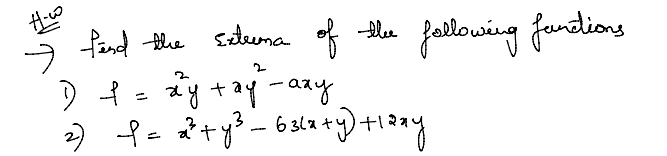 H.W
→ find the extrema of the following functions
1) f = x²y + xy² - axy
2) f = x³ + y³ - 63(x+y) + 12xy